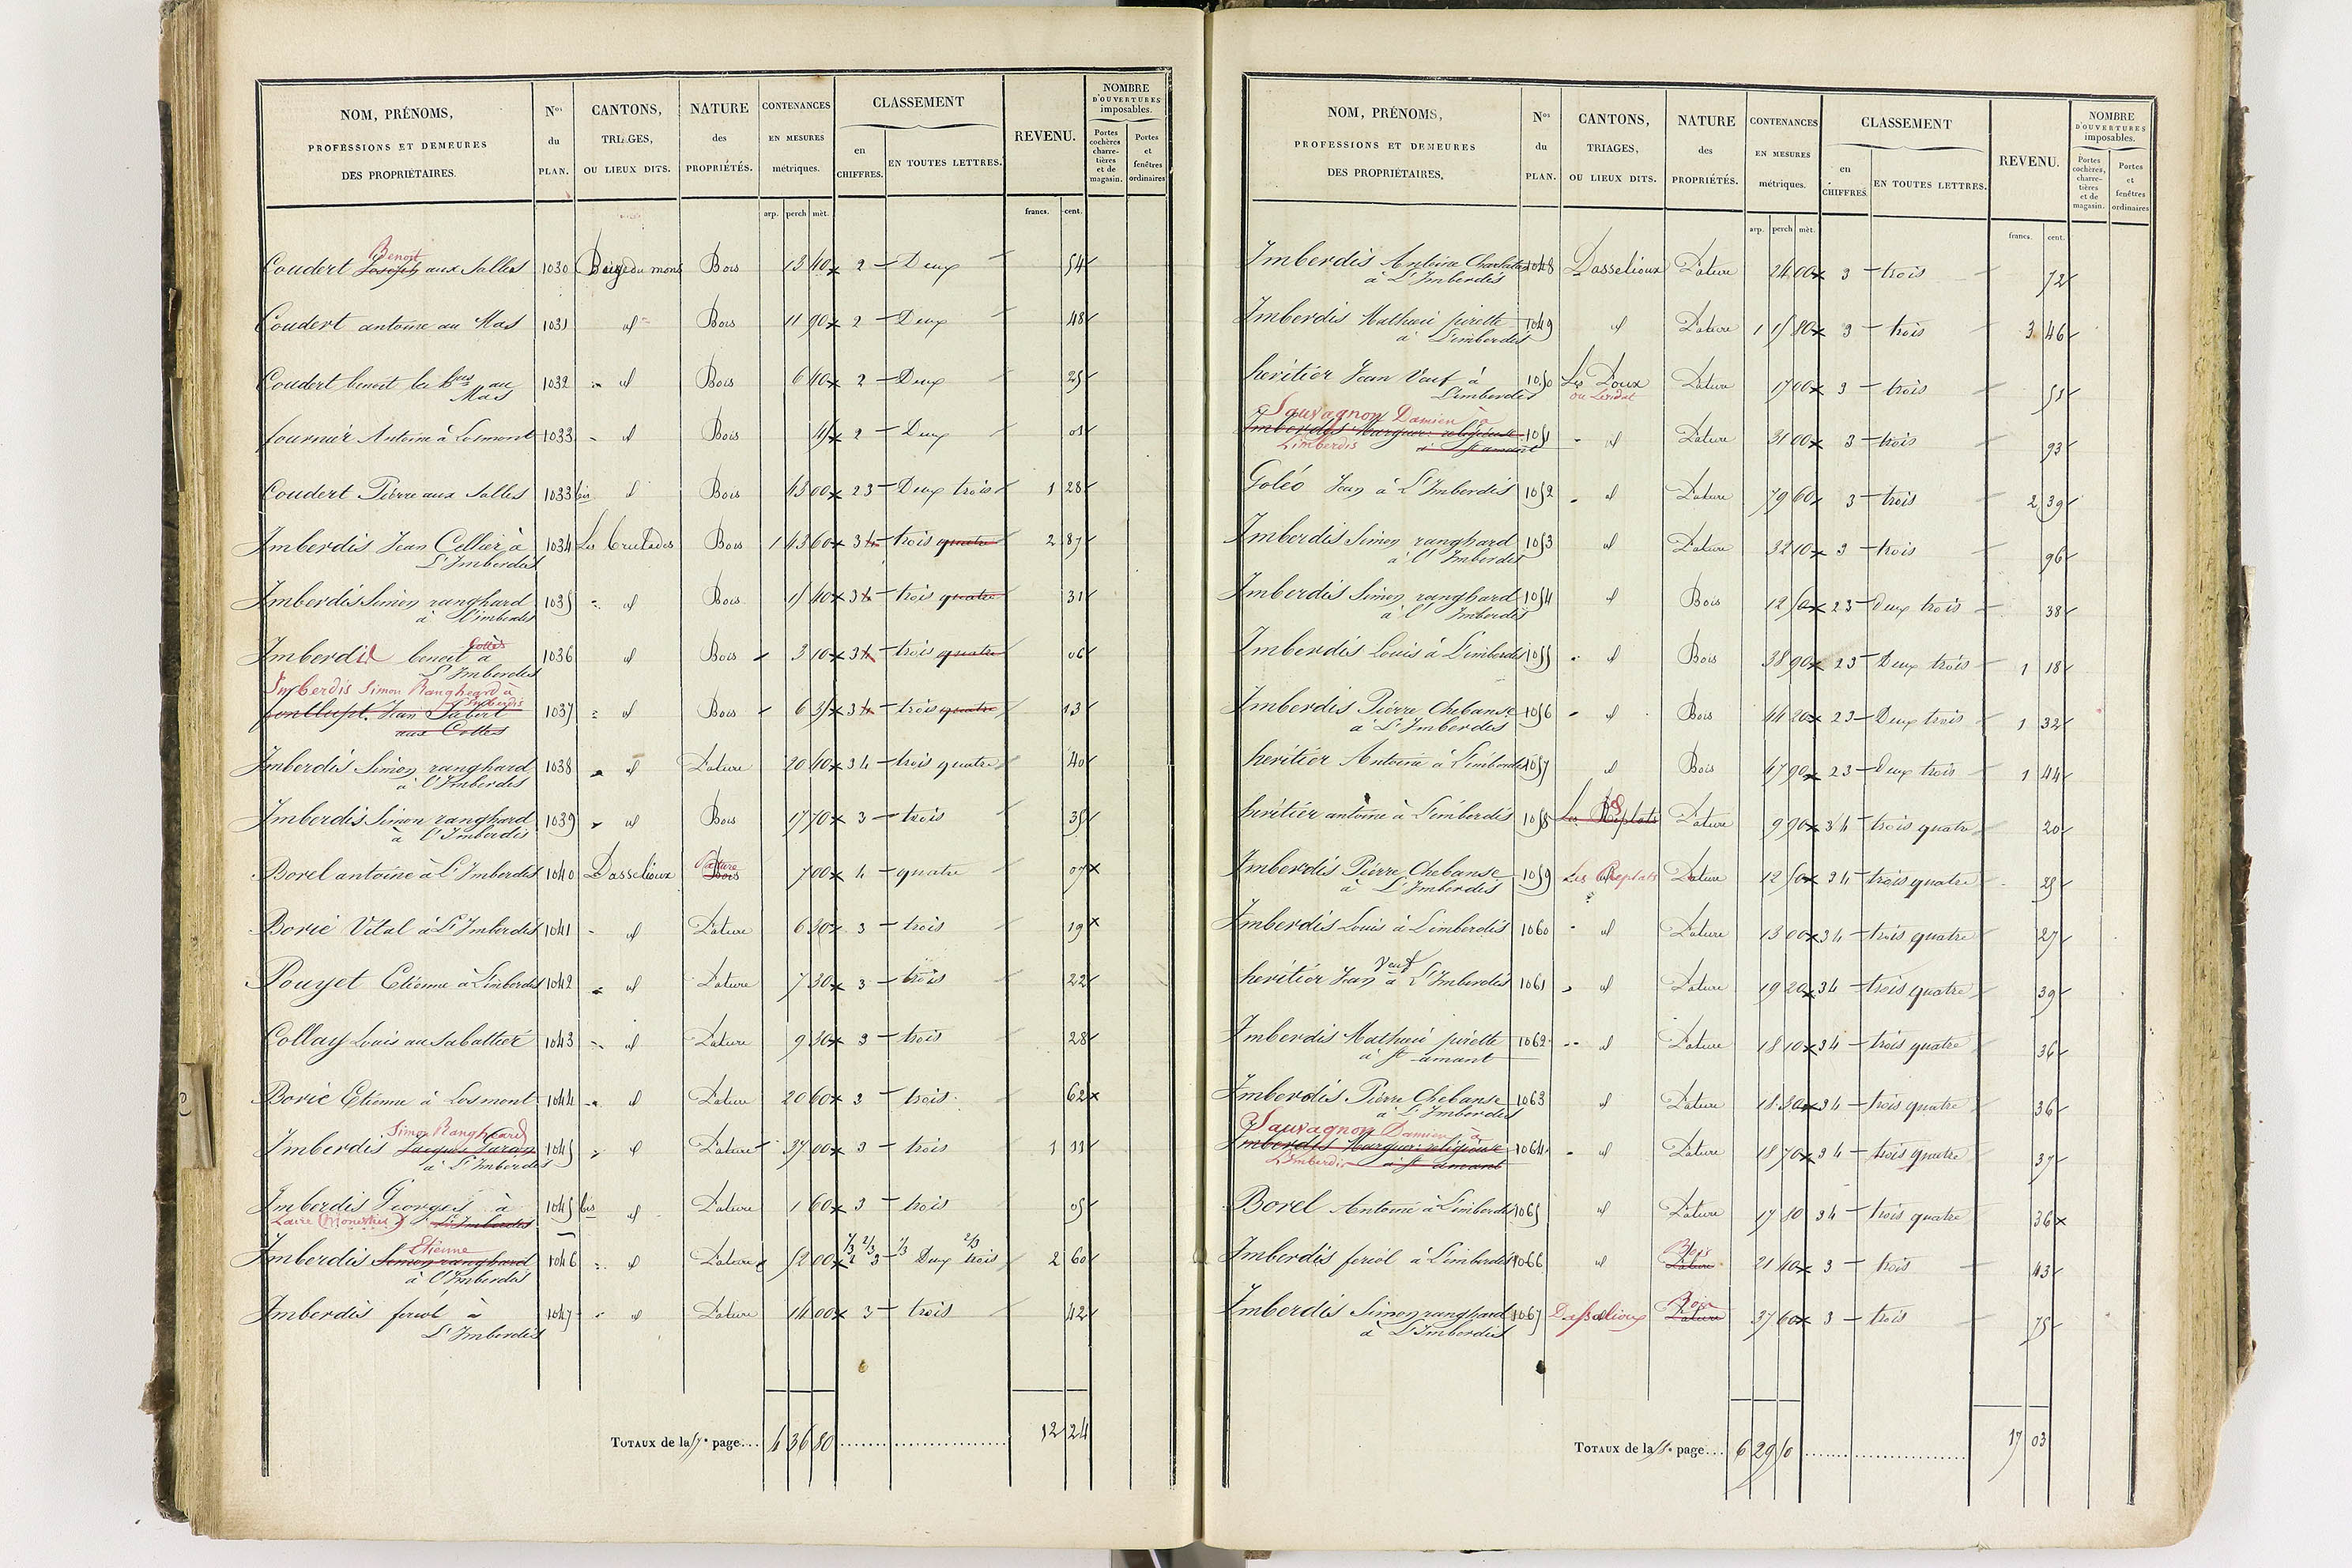 NOM, PRÉNOMS, PROFESSIONS ET DEMEURES DES PROPRIÉTAIRES. Nos du PLAN. CANTONS, TRIAGES, OU LIEUX DITS. NATURE des PROPRIÉTÉS. CONTENANCES EN MESURES métriques. CLASSEMENT en CHIFFRES. EN TOUTES LETTRES. REVENU. NOMBRE D'OUVERTURES imposables. Portes cochères charretières et de magasin. Portes et fenêtres ordinaires
arp. perch mèt. francs. cent.
Benoit
Coudert Joseph aux Salles 1030 du mons Bois 13 40 2 Deux 54
Coudert antoine au Mas 1031 id Bois 11 90 2 Deux 48
Coudert benoit au 1032 id Bois 6 40 2 Deux 25
Mas
fournier Antoine à Losmont 1033 id Bois 45 2 Deux 03
Coudert Pierre aux Salles 1033 bis id Bois 43 00 23 Deux trois 1 28
Imberdis Jean Cellier à 1034 Les Bois 1 43 60 3 4 trois quatre 2 87
L'Imberdis
Imberdis Simon ranghard 1035 id Bois 15 40 3 4 trois quatre 31
à l'imberdis
Imberdis benoit à 1036 id Bois 3 10 3 4 trois quatre 06
L'Imberdis
Imberdis Simon Rangheard à
L'Imberdis
Jean 1037 id Bois 6 35 3 4 trois quatre 13
aux
Imberdis Simon ranghard 1038 id Pature 20 40 3 4 trois quatre 40
à l'Imberdis
Imberdis Simon ranghard 1039 id Bois 17 70 3 trois 35
à l'Imberdis
Pature
Borel antoine à L'Imberdis 1040 Passelioux Bois 7 00 4 quatre 07
Borie Vital à L'Imberdis 1041 id Pature 6 30 3 trois 19
Pouyet Etienne à L'imberdis 1042 id Pature 7 30 3 trois 22
Collay Louis au Sabattier 1043 id Pature 9 30 3 trois 28
Borie Etienne à Losmont 1044 id Pature 20 60 3 trois 62
Simon Rangheard
Imberdis Jacques 1045 id Pature 37 00 3 trois 1 11
à L'Imberdis
Imberdis Georges à 1045 bis id Pature 1 60 3 trois 05
(Monestier) L'Imberdis
Etienne
Imberdis Simon ranghard 1046 id Pature 52 00 1/3 2/3 2 3 1/3 Deux 2/3 trois 2 60
à l'Imberdis
Imberdis fereol à 1047 id Pature 14 00 3 trois 42
L'Imberdis
TOTAUX de la 57e page.... 4 36 80 12 24
NOM, PRÉNOMS, PROFESSIONS ET DEMEURES DES PROPRIÉTAIRES, Nos du PLAN. CANTONS, TRIAGES, OU LIEUX DITS. NATURE des PROPRIÉTÉS. CONTENANCES EN MESURES métriques. CLASSEMENT en CHIFFRES. EN TOUTES LETTRES. REVENU. NOMBRE D'OUVERTURES imposables. Portes cochères, charretières et de magasin. Portes et fenêtres ordinaires
arp. perch mèt. francs. cent.
Imberdis Antoine 1048 Passelioux Pature 24 00 3 trois 72
à L'Imberdis
Imberdis Mathieu pirette 1049 id Pature 1 15 80 3 trois 3 46
à L'imberdis
heritier Jean Veuf à 1050 Pature 17 00 3 trois 51
L'imberdis
Sauvagnon Damien à
Imberdis Marguer: religieuse 1051 id Pature 31 00 3 trois 93
Limberdis à St amant
Goléo Jean à L'Imberdis 1052 id Pature 79 60 3 trois 2 39
Imberdis Simon ranghard 1053 id Pature 32 10 3 trois 96
à l'Imberdis
Imberdis Simon ranghard 1054 id Bois 12 50 23 Deux trois 38
à l'Imberdis
Imberdis Louis à L'imberdis 1055 id Bois 38 90 23 Deux trois 1 18
Imberdis Pierre Chebanse 1056 id Bois 44 20 23 Deux trois 1 32
à L'Imberdis
heritier Antoine à L'imberdis 1057 id Bois 47 90 23 Deux trois 1 44
heritier antoine à L'imberdis 1058 Les Replats Pature 9 90 3 4 trois quatre 20
Imberdis Pierre Chebanse 1059 Les Replats Pature 12 50 3 4 trois quatre 25
à L'Imberdis
Imberdis Louis à L'imberdis 1060 id Pature 13 00 3 4 trois quatre 27
Veuf
heritier Jean à L'Imberdis 1061 id Pature 19 20 3 4 trois quatre 39
Imberdis Mathieu pirette 1062 id Pature 18 10 3 4 trois quatre 36
à St amant
Imberdis Pierre Chebanse 1063 id Pature 18 30 3 4 trois quatre 36
à L'Imberdis
Sauvagnon Damien à
Imberdis Marguer: religieuse 1064 id Pature 18 70 3 4 trois quatre 37
L'Imberdis à St amant
Borel Antoine à L'imberdis 1065 id Pature 17 80 3 4 trois quatre 36
Bois
Imberdis fereol à L'imberdis 1066 id Pature 21 40 3 trois 43
Bois
Imberdis Simon ranghard 1067 Passelioux Pature 37 60 3 trois 75
à L'Imberdis
TOTAUX de la 58e page... 6 29 50 17 03